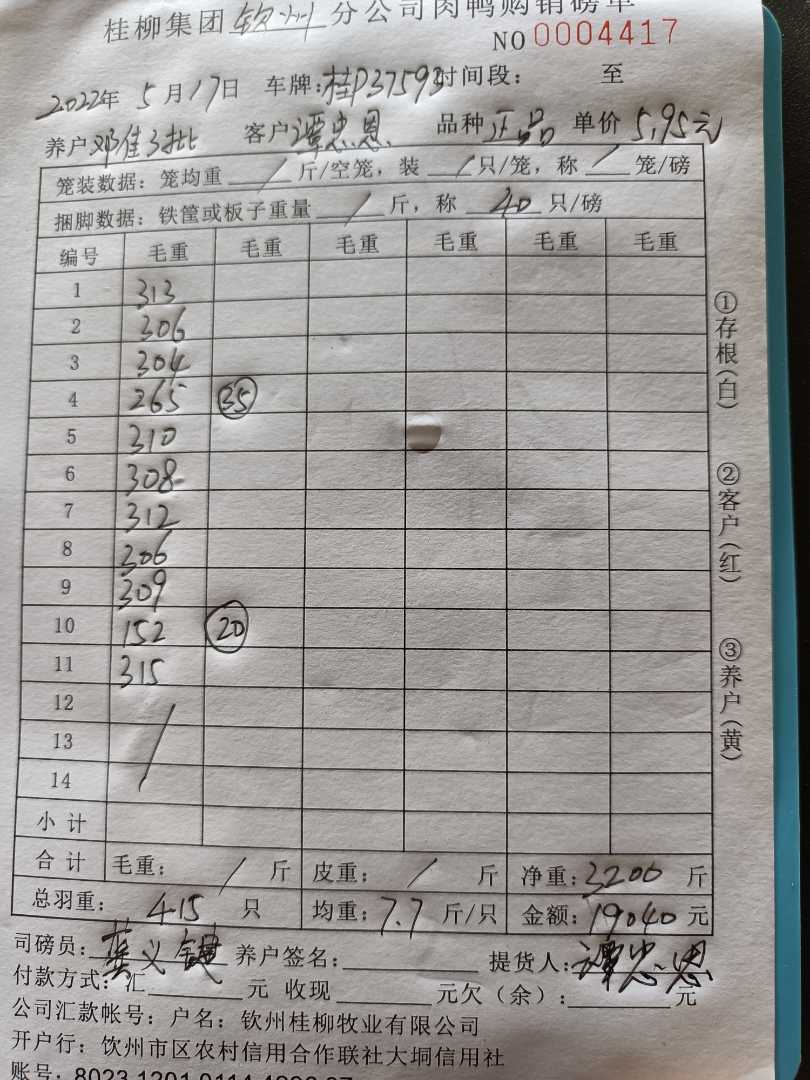 桂柳集团钦州分公司肉鸭购销磅单
NO 0004417
2022年 5月17日 车牌:桂P37593时间段: 至
养户邓佳3批 客户谭忠恩 品种正品 单价5.95元
笼装数据: 笼均重 / 斤/空笼, 装 / 只/笼, 称 / 笼/磅
捆脚数据: 铁筐或板子重量 / 斤, 称 40 只/磅
编号 毛重 毛重 毛重 毛重 毛重 毛重
1 313
2 306
3 304
4 265 35
5 310
6 308
7 312
8 306
9 309
10 152 20
11 315
12
13
14
小计
合计 毛重: / 斤 皮重: / 斤 净重:3200 斤
总羽重: 415 只 均重:7.7 斤/只 金额:19040 元
司磅员: 龚义键 养户签名: 提货人:谭忠恩
付款方式:汇 元 收现 元欠(余): 元
公司汇款帐号: 户名: 钦州桂柳牧业有限公司
开户行: 钦州市区农村信用合作联社大垌信用社
账号: 8023 1201 0114
①存根(白)
②客户(红)
③养户(黄)